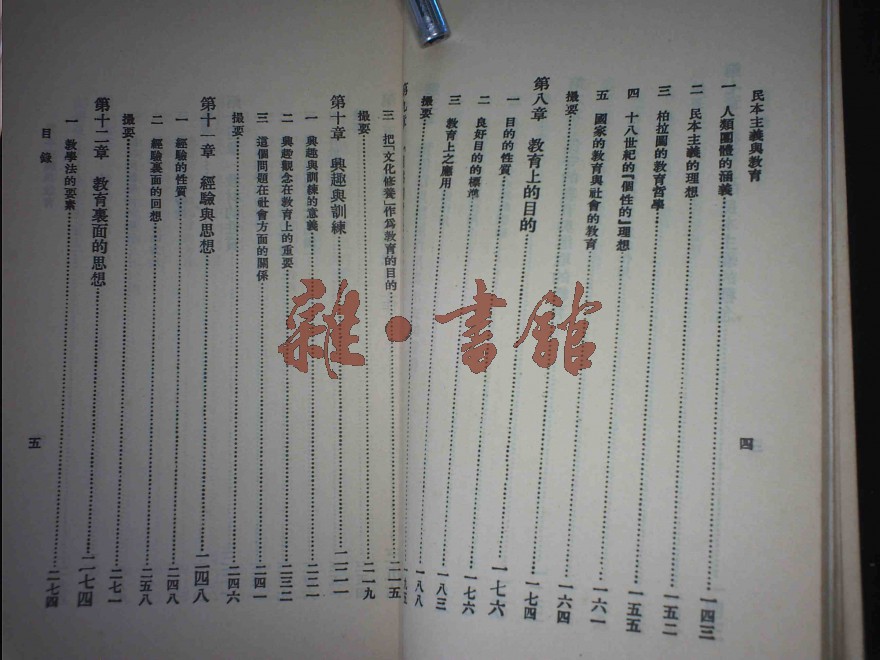 民本主義與教育
一 人類團體的涵義……一四三
二 民本主義的理想……
三 柏拉圖的教育哲學……一五二
四 十八世紀的「個性的」理想……一五五
五 國家的教育與社會的教育……一六一
撮要……一六四
第八章 教育上的目的……一七四
一 目的的性質……一七六
二 良好目的的標準……一七六
三 教育上之應用……一八三
撮要……一八八
四
三 把「文化修養」作爲教育的目的……二一五
撮要……二一九
第十章 興趣與訓練……二二一
一 興趣與訓練的意義……二二一
二 興趣觀念在教育上的重要……二三二
三 這個問題在社會方面的關係……二四一
撮要……二四六
第十一章 經驗與思想……二四八
一 經驗的性質……二四八
二 經驗裏面的回想……二五八
撮要……二七一
第十二章 教育裏面的思想……二七四
一 教學法的要素……二七四
目錄
五
雜·書館